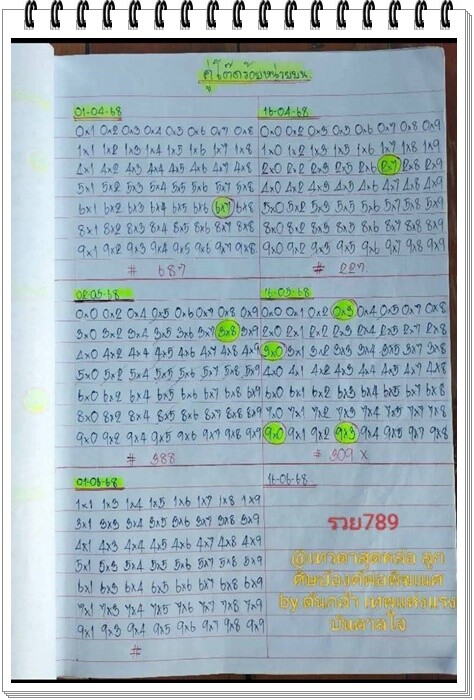 คู่โต๊ดร้อยหน่วยบน
01-04-68
0x1 0x2 0x3 0x4 0x5 0x6 0x7 0x8
1x1 1x2 1x3 1x4 1x5 1x6 1x7 1x8
4x1 4x2 4x3 4x4 4x5 4x6 4x7 4x8
5x1 5x2 5x3 5x4 5x5 5x6 5x7 5x8
6x1 6x2 6x3 6x4 6x5 6x6 6x7 6x8
8x1 8x2 8x3 8x4 8x5 8x6 8x7 8x8
9x1 9x2 9x3 9x4 9x5 9x6 9x7 9x8
# 687
16-04-68
0x0 0x2 0x3 0x5 0x6 0x7 0x8 0x9
1x0 1x2 1x3 1x5 1x6 1x7 1x8 1x9
2x0 2x2 2x3 2x5 2x6 2x7 2x8 2x9
4x0 4x2 4x3 4x5 4x6 4x7 4x8 4x9
5x0 5x2 5x3 5x5 5x6 5x7 5x8 5x9
8x0 8x2 8x3 8x5 8x6 8x7 8x8 8x9
9x0 9x2 9x3 9x5 9x6 9x7 9x8 9x9
# 227
02-05-68
0x0 0x2 0x4 0x5 0x6 0x7 0x8 0x9
3x0 3x2 3x4 3x5 3x6 3x7 3x8 3x9
4x0 4x2 4x4 4x5 4x6 4x7 4x8 4x9
5x0 5x2 5x4 5x5 5x6 5x7 5x8 5x9
6x0 6x2 6x4 6x5 6x6 6x7 6x8 6x9
8x0 8x2 8x4 8x5 8x6 8x7 8x8 8x9
9x0 9x2 9x4 9x5 9x6 9x7 9x8 9x9
# 388
16-05-68
0x0 0x1 0x2 0x3 0x4 0x5 0x7 0x8
2x0 2x1 2x2 2x3 2x4 2x5 2x7 2x8
3x0 3x1 3x2 3x3 3x4 3x5 3x7 3x8
4x0 4x1 4x2 4x3 4x4 4x5 4x7 4x8
6x0 6x1 6x2 6x3 6x4 6x5 6x7 6x8
7x0 7x1 7x2 7x3 7x4 7x5 7x7 7x8
9x0 9x1 9x2 9x3 9x4 9x5 9x7 9x8
# 309 x
01-06-68
1x1 1x3 1x4 1x5 1x6 1x7 1x8 1x9
3x1 3x3 3x4 3x5 3x6 3x7 3x8 3x9
4x1 4x3 4x4 4x5 4x6 4x7 4x8 4x9
5x1 5x3 5x4 5x5 5x6 5x7 5x8 5x9
6x1 6x3 6x4 6x5 6x6 6x7 6x8 6x9
7x1 7x3 7x4 7x5 7x6 7x7 7x8 7x9
9x1 9x3 9x4 9x5 9x6 9x7 9x8 9x9
#
16-06-68
รวย789
@เทวดาสุดหล่อ ลูก
by ต้นกล้า เทพแห่งแรง
บันดาลใจ